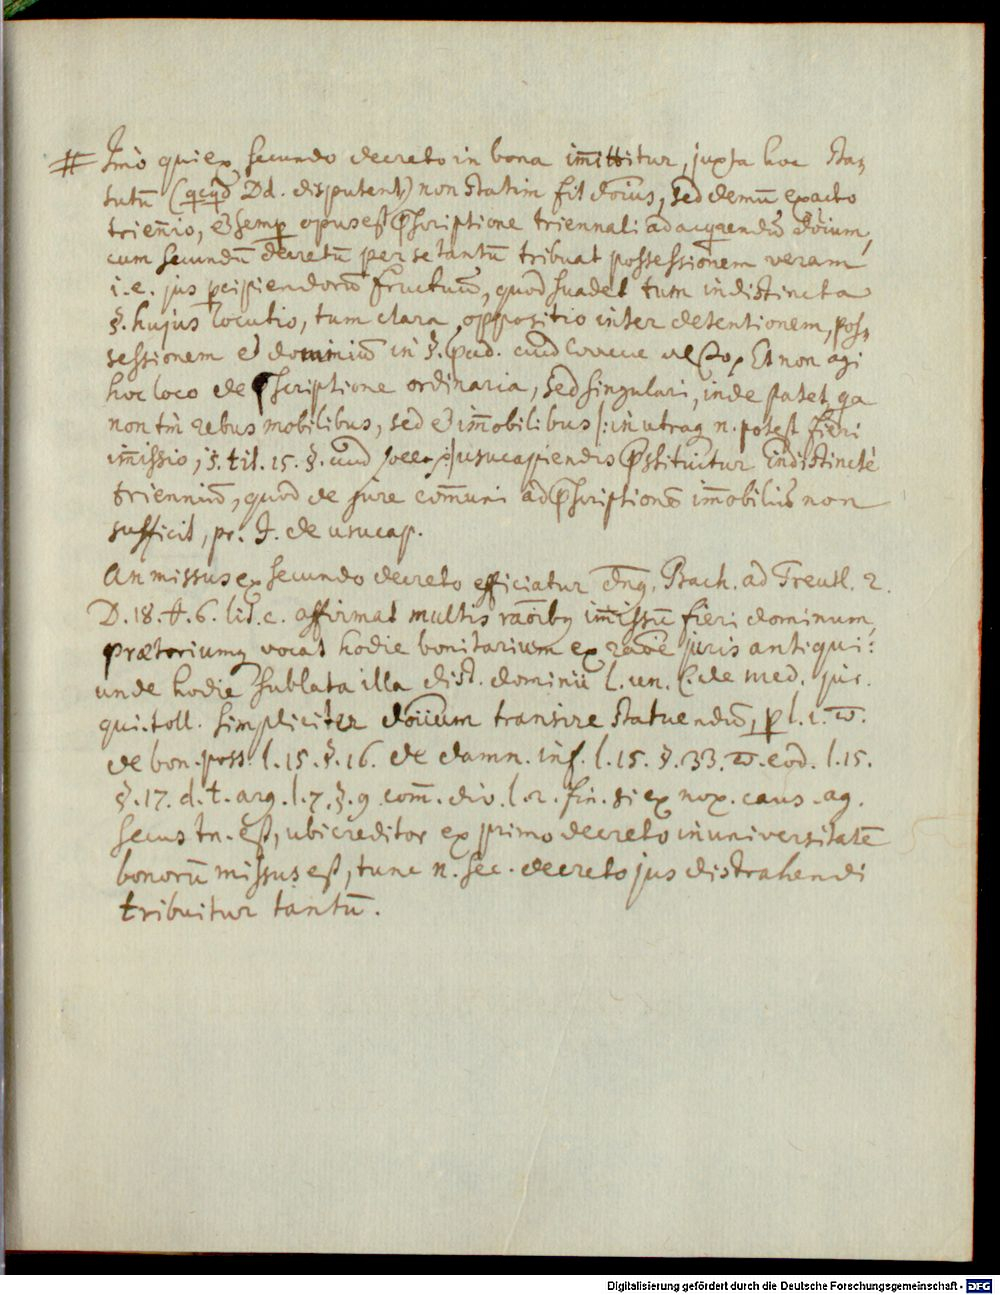 # Imò qui ex secundo decreto in bona im̄ittitur, juxta hoc sta=
tutū (qcqd Dd. disputent) non statim fit dōius, sed demū exacto
trien̄io, et semp opus est pscriptione triennali ad acqrendū dōium,
cum secundū decretū per se tantū tribuat possessionem veram
i.e. jus pcipiendorū fructuū, quod suadet tum indistincta
§. hujus locutio, tum clara oppositio inter detentionem, pos=
sessionem et dominiū in §. Et non agi
hoc loco de pscriptione ordinaria, sed singulari, inde patet, qa
non tm̄ rebus mobilibus, sed et im̄obilibus /: in utraq n. potest fieri
im̄issio, j. tit. 15. §. :/ usucapiendis pstituitur indistinctè
trienniū, quod de jure com̄uni ad pscriptionē im̄obiliū non
sufficit, pr. I. de usucap.
An missus ex secundo decreto efficiatur dn̄q, Bach. ad Treutl. 2.
D. 18. th. 6. lit. c. affirmat multis raōibq im̄issū fieri dominum,
prætoriumq vocat hodie bonitarium ex raōe juris antiqui:
unde hodie sublata illa dist. dominii l. un. C. de
qui. toll. simpliciter dōiium transire statuendū, p l. 1. ϖ.
de bon. poss. l. 15. §. 16. de damn. inf. l. 15. §. 33. ϖ. eod. l. 15.
§. 17. d. t. arg. l. 7. §. 9. com̄. div. l. 2. fin. si ex nox. caus. ag.
secus tn. est, ubi creditor ex primo decreto in universitatē
bonorū missus est, tunc n. sec. decreto jus distrahendi
tribuitur tantū.
Digitalisierung gefördert durch die Deutsche Forschungsgemeinschaft - DFG